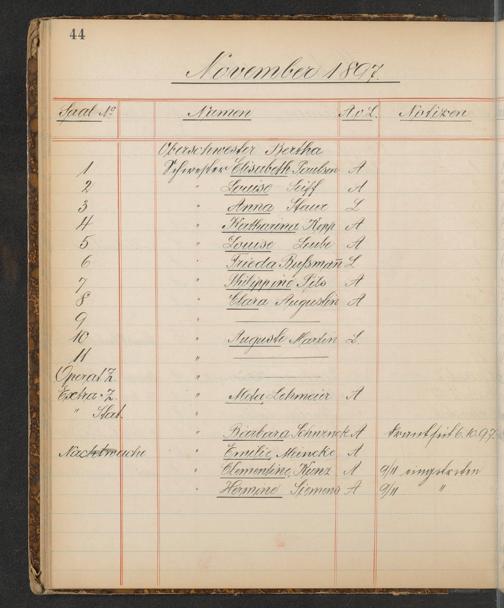 44
November 1897.
Saal No Namen A.v.L. Notizen
Oberschwester Bertha
1 Schwester Elisabeth Paulsen A
2 " Louise Seiff A
3 " Anna L
4 " Katharina Kopp A
5 " Louise A
6 " Frieda Bußmann L
7 " Philippine A
8 " Clara Augustin A
9 "
10 " Auguste Martin L.
11 "
Operat. Z. "
Extra. Z. " Meta Lehmeier A
" Stat. "
" Barbara Schwenck A krank seit 6.10.97.
Nachtwache " Emilie Meincke A
" Clementine Kunz A 9/11 eingetreten
" Hermine Siemens A 9/11 "